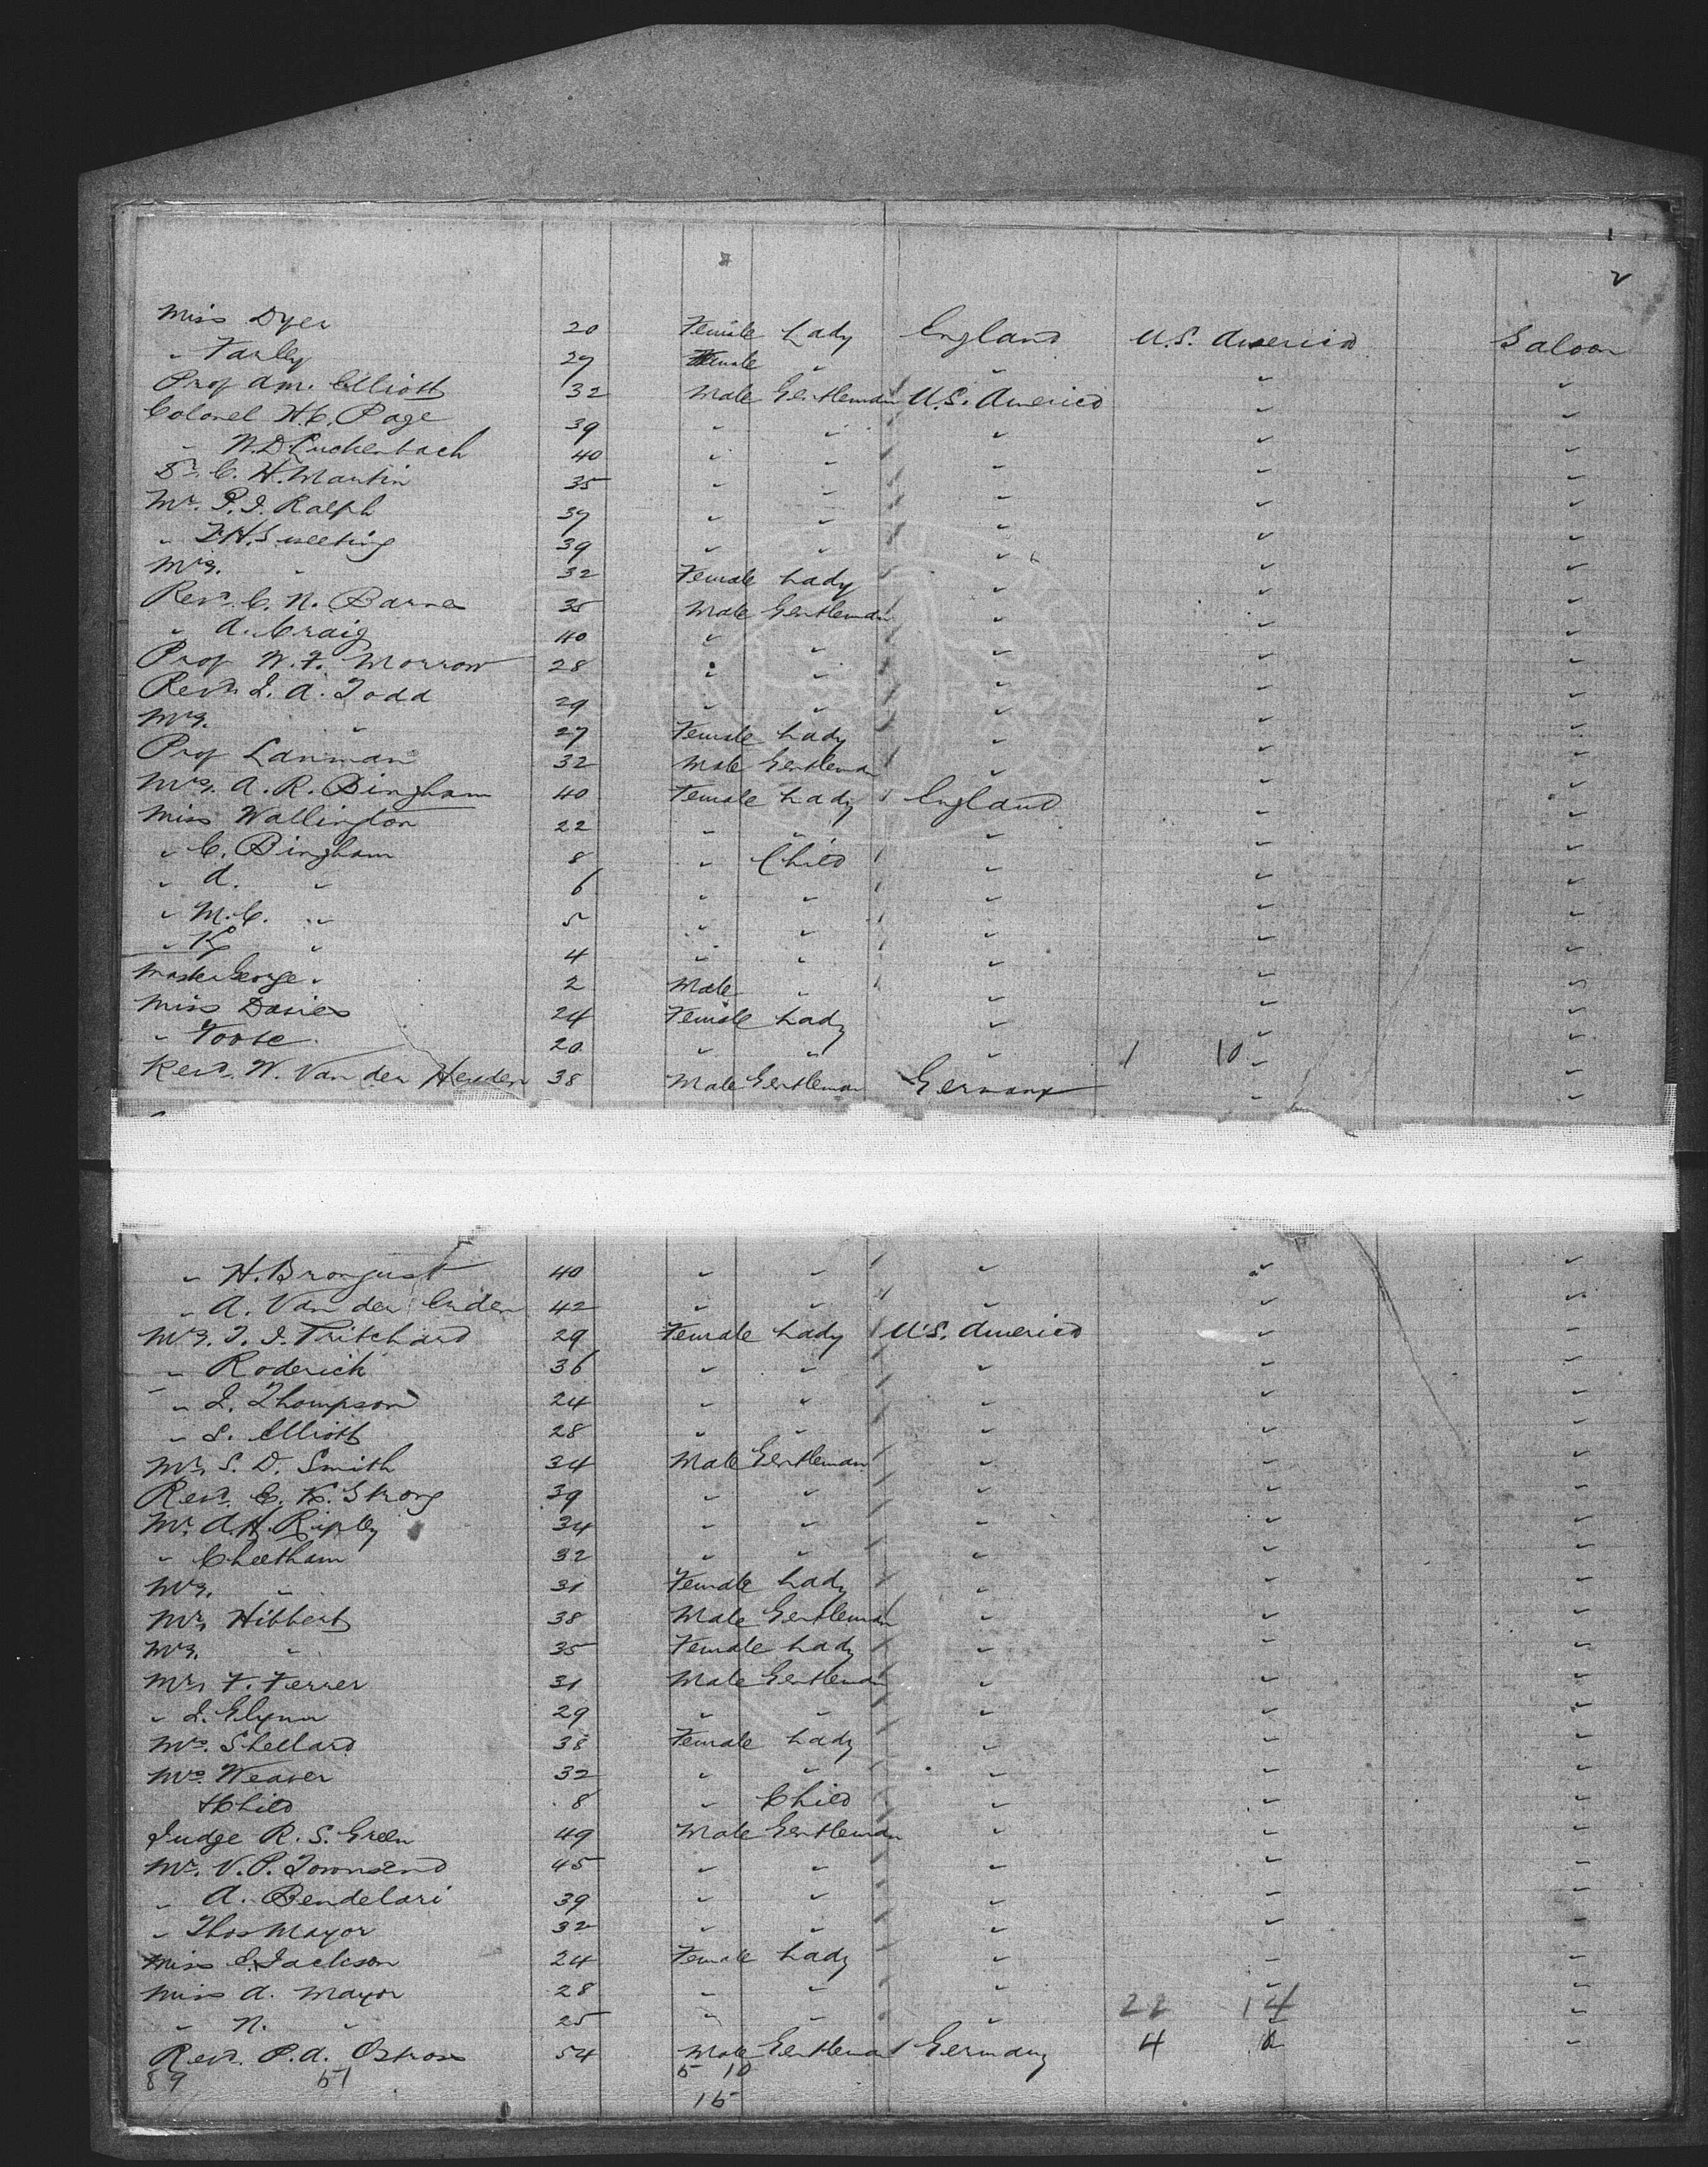 2
Miss Dyer 20 Female Lady England U.S. America Saloon
" Farley 27 Female " " " "
Prof Am. Elliott 32 Male Gentleman U.S. America " "
Colonel H.C. Page 39 " " " " "
" N.D. Luckenbach 40 " " " " "
Dr. C. H. Martin 35 " " " " "
Mr. P. J. Ralph 37 " " " " "
" T.H. Sweeting 39 " " " " "
Mrs. " 32 Female Lady " " "
Revd. C. N. Barnes 35 Male Gentleman " " "
" A. Craig 40 " " " " "
Prof W. F. Morrow 28 " " " " "
Revd. J. A. Todd 29 " " " " "
Mrs. " 27 Female Lady " " "
Prof Lanman 32 Male Gentleman " " "
Mrs. A. R. Bingham 40 Female Lady England " "
Miss Wallington 22 " " " " "
" C. Bingham 8 " Child " " "
" A. " 6 " " " " "
" M.C. " 5 " " " " "
" K " 4 " " " " "
Master George " 2 Male " " " "
Miss Davies 24 Female Lady " " "
" Foote 20 " " " 1 10 " "
Revd. W. Van der Heyden 38 Male Gentleman Germany " "
" H. Brongust 40 " " " " "
" A. Van der Enden 42 " " " " "
Mrs. T. J. Pritchard 29 Female Lady U.S. America " "
" Roderick 36 " " " " "
" J. Thompson 24 " " " " "
" S. Elliott 28 " " " " "
Mr. S. D. Smith 34 Male Gentleman " " "
Revd. E. K. Strong 39 " " " " "
Mr. A.H. Ripley 34 " " " " "
" Cheetham 32 " " " " "
Mrs. " 31 Female Lady " " "
Mr. Hibbert 38 Male Gentleman " " "
Mrs. " 35 Female Lady " " "
Mr. F. Ferrer 31 Male Gentleman " " "
" J. Glynn 29 " " " " "
Mrs. Shellard 38 Female Lady " " "
Mrs. Weaver 32 " " " " "
+ Child 8 " Child " " "
Judge R. S. Green 49 Male Gentleman " " "
Mr. V. P. Townsend 45 " " " " "
" A. Bendelari 39 " " " " "
" Thos Mayor 32 " " " " "
Miss E. Jackson 24 Female Lady " " "
Miss A. Mayor 28 " " " " "
" N. " 25 " " " 22 14 "
Revd. P. A. Ostrass 54 Male Gentleman Germany 4 "
89 51 5 10
15